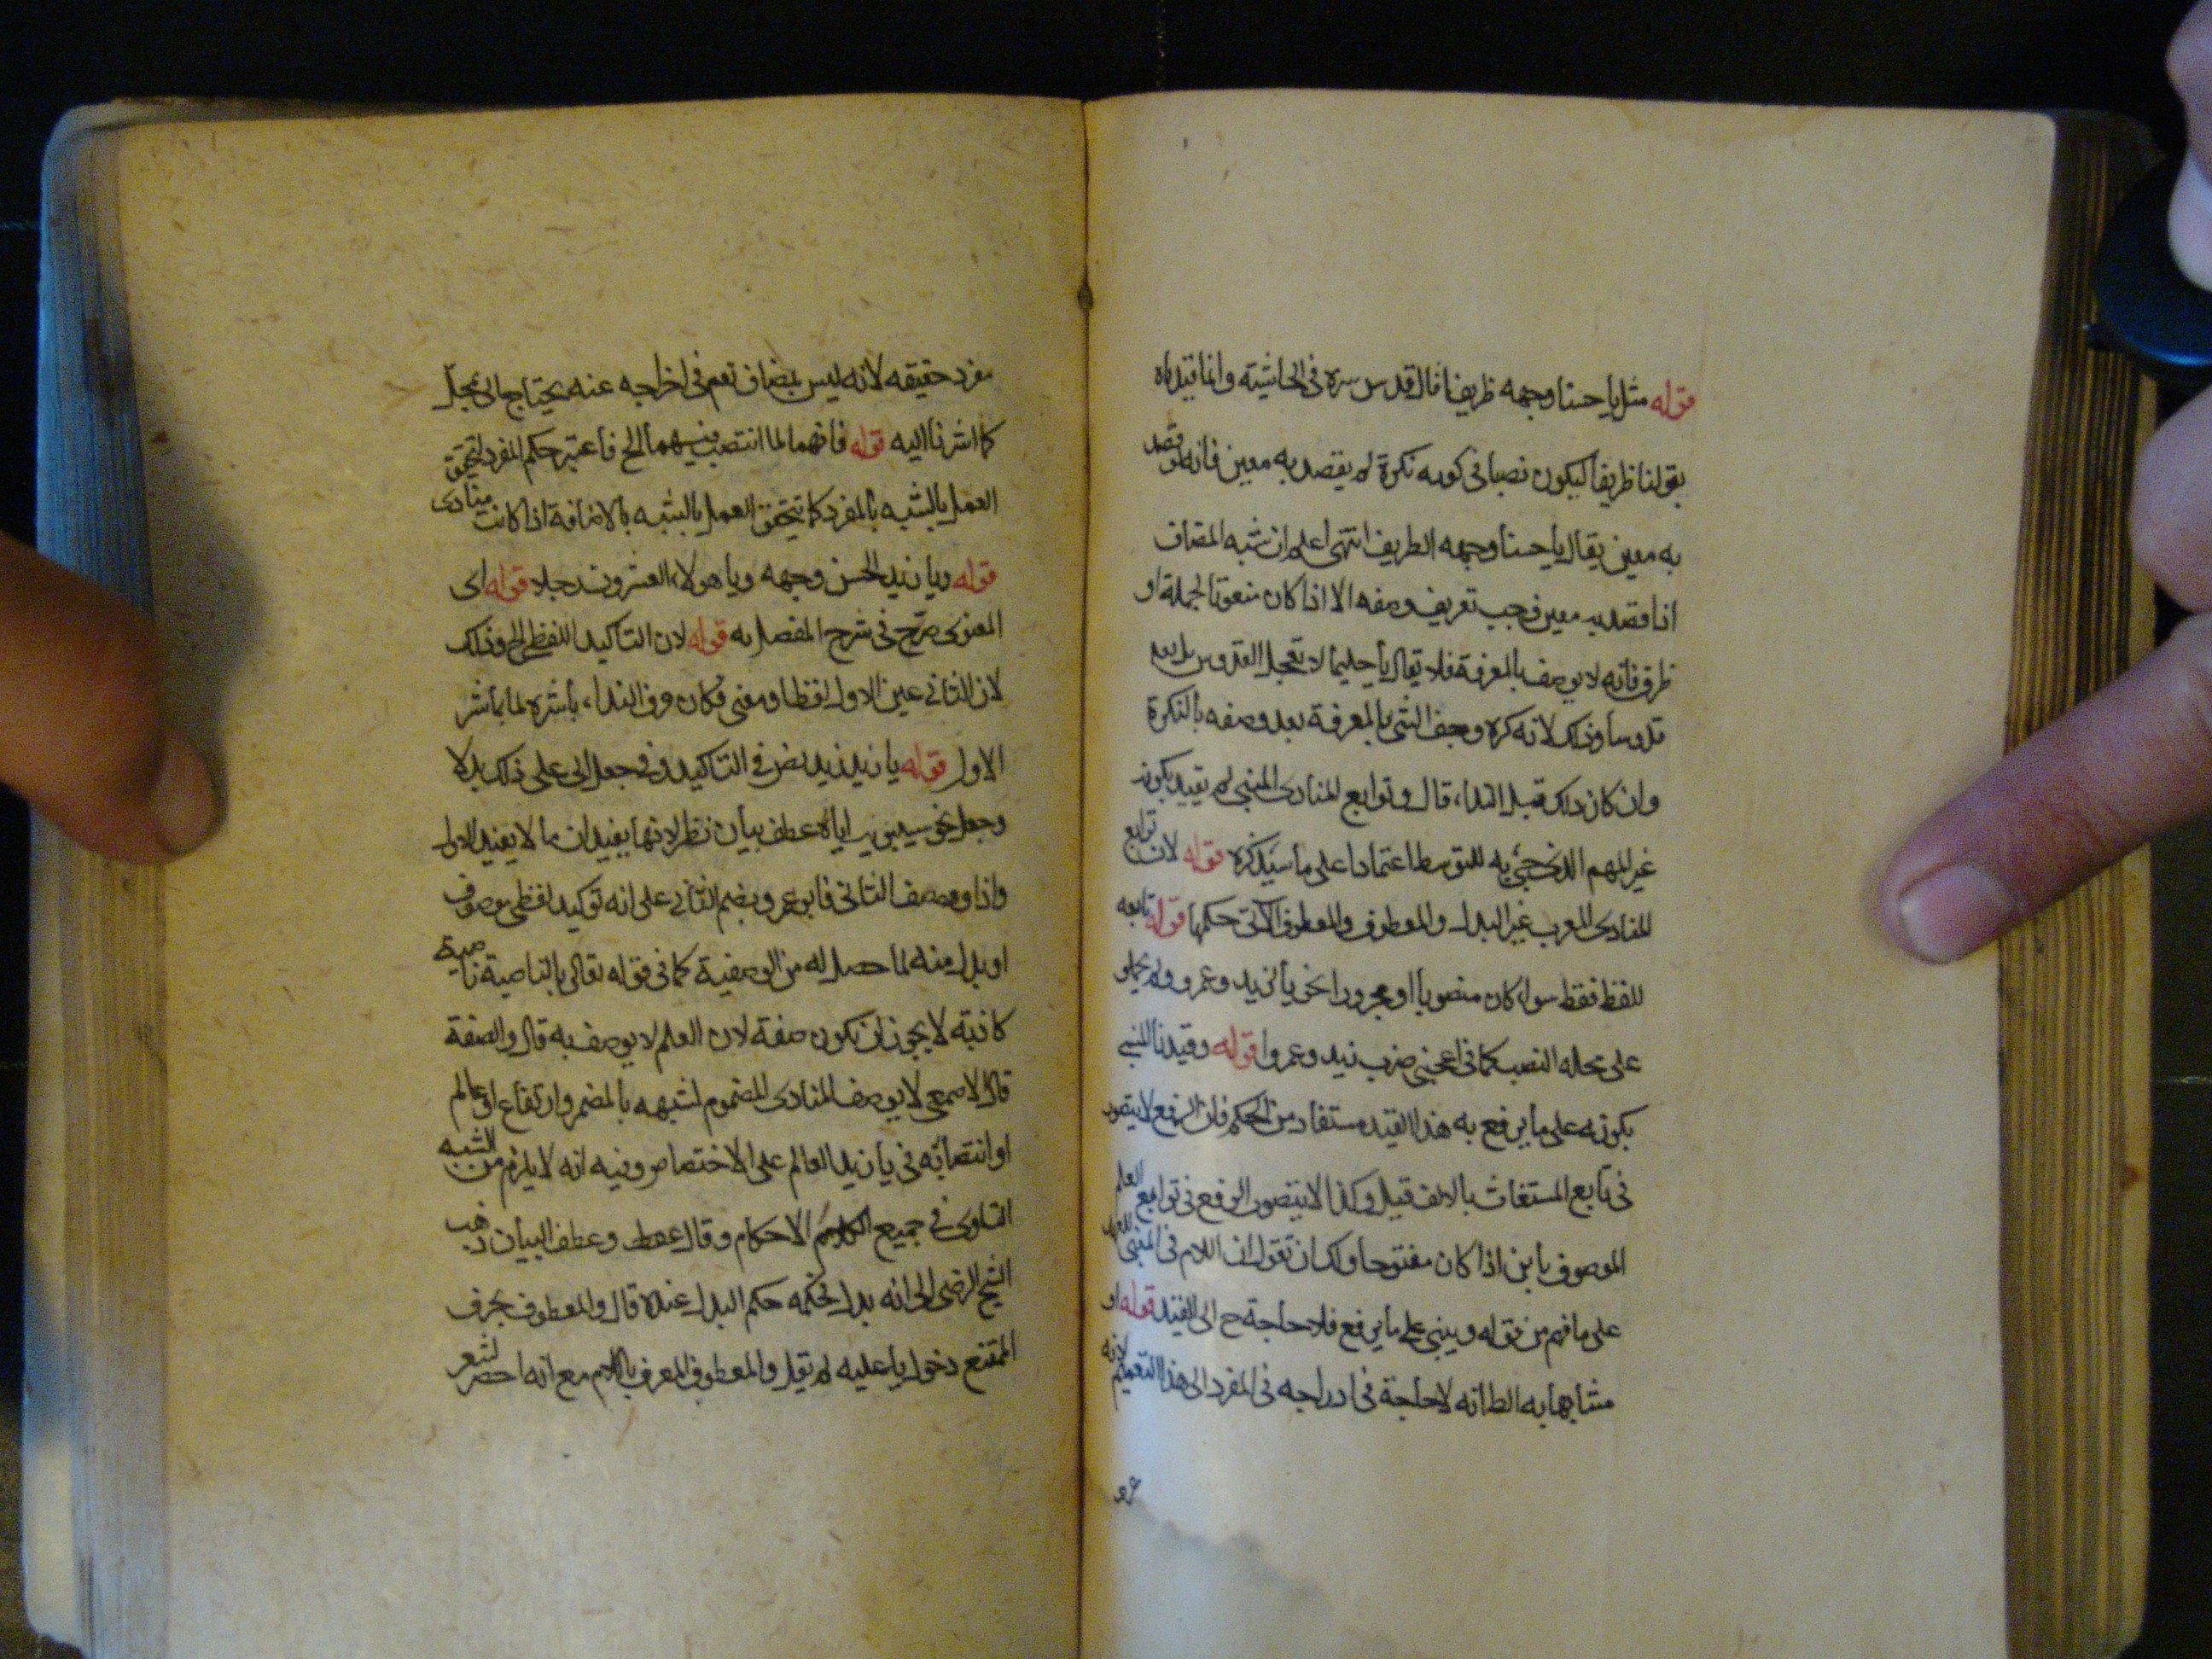 قوله مثل يا حسنا وجهه ظريفا قال قدس سره في الحاشية وانما قيدناه
بقولنا ظريفا ليكون نصبا في كونه نكرة لم يقصد به معين فانه لو قصد
به معين يقال يا حسنا وجهه الظريف انتهى اعلم ان شبه المضاف
اذا قصد به معين وجب تعريف وصفه الا اذا كان منعوتا لجملة او
ظرف فانه لا يوصف بالمعرفة فلا يقال يا حليما لا تعجل القدوس بل يعد
قدوسا وذلك لانه كره وصف الشي بالمعرفة بعد وصفه بالنكرة
وان كان ذلك قبل الندا، قال وتوابع المنادى المبني لم تقييد بكونه
غير المبهم الذي جئ به للتوسط اعتمادا على ما سيذكره قوله لان توابع
المنادى المعرب غير البدل والمعطوف والمعطوف الاتى حكمها قوله تابعه
للفظ فقط سواء كان منصوبا او مجرورا نحو يا لزيد وعمرو ولم يحملو
على محله النصب كما في اعجبني ضرب زيد وعمروا قوله وقيدنا المبني
بكونه على ما يرفع به هذا القيد مستفاد من الحكم فان الرفع لا يتصور
في تابع المستغاث بالالف قيل وكذا لا يتصور الرفع في توابع العلم
الموصوف بابن اذا كان مفتوحا ولك ان تقول ان اللام في المبني للعهد
على ما فهم من قوله ويبنى على ما يرفع فلا حاجة ح الى القيد قوله او
مشابها به الظ انه لا حاجة في ادراجه في المفرد الى هذا التعميم لانه
مفرد حقيقه لانه ليس بمضاف نعم في اخراجه عنه يحتاج الى تمحل
كما اشرنا اليه قوله فانهما لما انتصب فيهما الخ فأعتبر حكم المفرد لتحقق
العمل بالشبه بالمفرد كما تحقق العمل بالشبه بالاضافة اذا كانت منادى
قوله ويا زيد الحسن وجهه ويا هولاء العشرون رجلا قوله اى
المعنوى صرح في شرح المفصل به قوله لان التاكيد اللفظى الخ وذلك
لان الثاني عين الاول لفظا ومعنى فكان حرف الندا، بأشره لما بأشر
الاول قوله يا زيد زيد نص في التاكيد وفي جعل الى على ذلك بدلا
وجعل نحو سيبويه اياه عطف بيان نظر لانهما يفيدان ما لا يفيد الاول
واذا وصف الثاني فابو عمرو يضم الثاني على انه توكيد لفظى موصوف
او بدل منه لما حصل له من الوصفية كما في قوله تعالى بالناصية ناصية
كاذبة لا يجوز ان يكون صفة لان العلم لا يوصف به قال والصفة
قال الاصمعي لا يوصف المنادى المضموم لشبهه بالمضمر وارتفاع العالم
او انتصابه في يا زيد العالم على الاختصاص وفيه انه لا يلزم من الشبه
التساوى في جميع الاحكام وقال وعطف البيان ذهب
الشيخ الرضى الى انه بدل فحكمه حكم البدل عنده قال والمعطوف بحرف
الممتنع دخول يا عليه لم يقل والمعطوف المعرف باللام مع انه اخصر لشعر